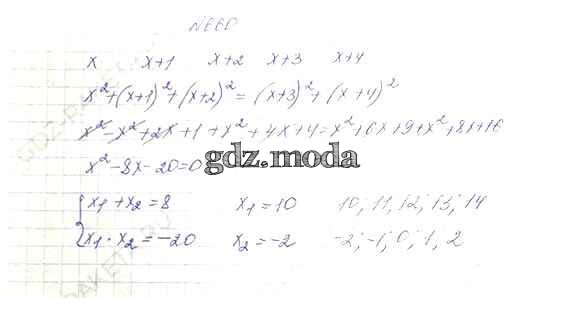 №660
x x+1 x+2 x+3 x+4
x²+(x+1)²+(x+2)²=(x+3)²+(x+4)²
x²-x²+2x+1+x²+4x+4=x²+6x+9+x²+8x+16
x²-8x-20=0
gdz.moda
{x₁+x₂=8 x₁=10 10; 11; 12; 13; 14
x₁·x₂=-20 x₂=-2 -2; -1; 0; 1; 2